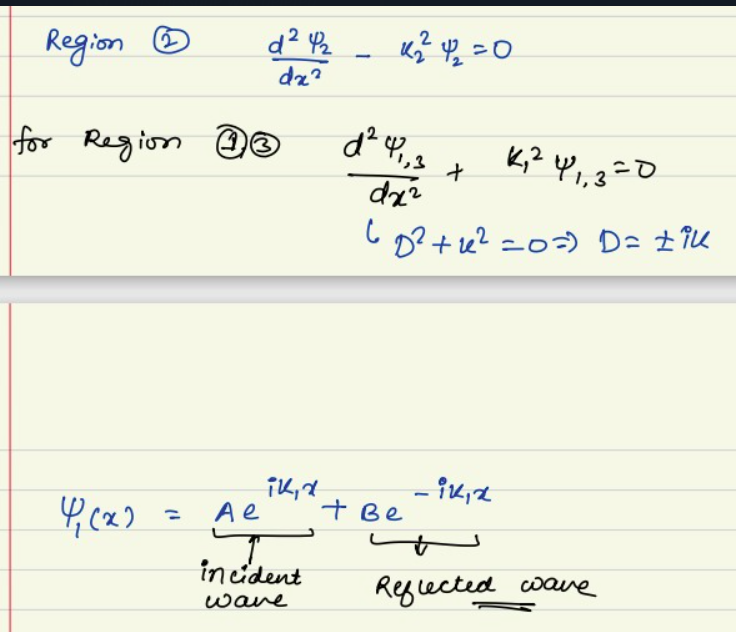 Region ② d²ψ₂/dx² - K₂² ψ₂ = 0
for Region ①,③ d²ψ₁,₃/dx² + K₁² ψ₁,₃ = 0
↳ D² + K² = 0 ⇒ D = ± iK
ψ₁(x) = A e^{iK₁x} + B e^{-iK₁x}
incident wave
Reflected wave